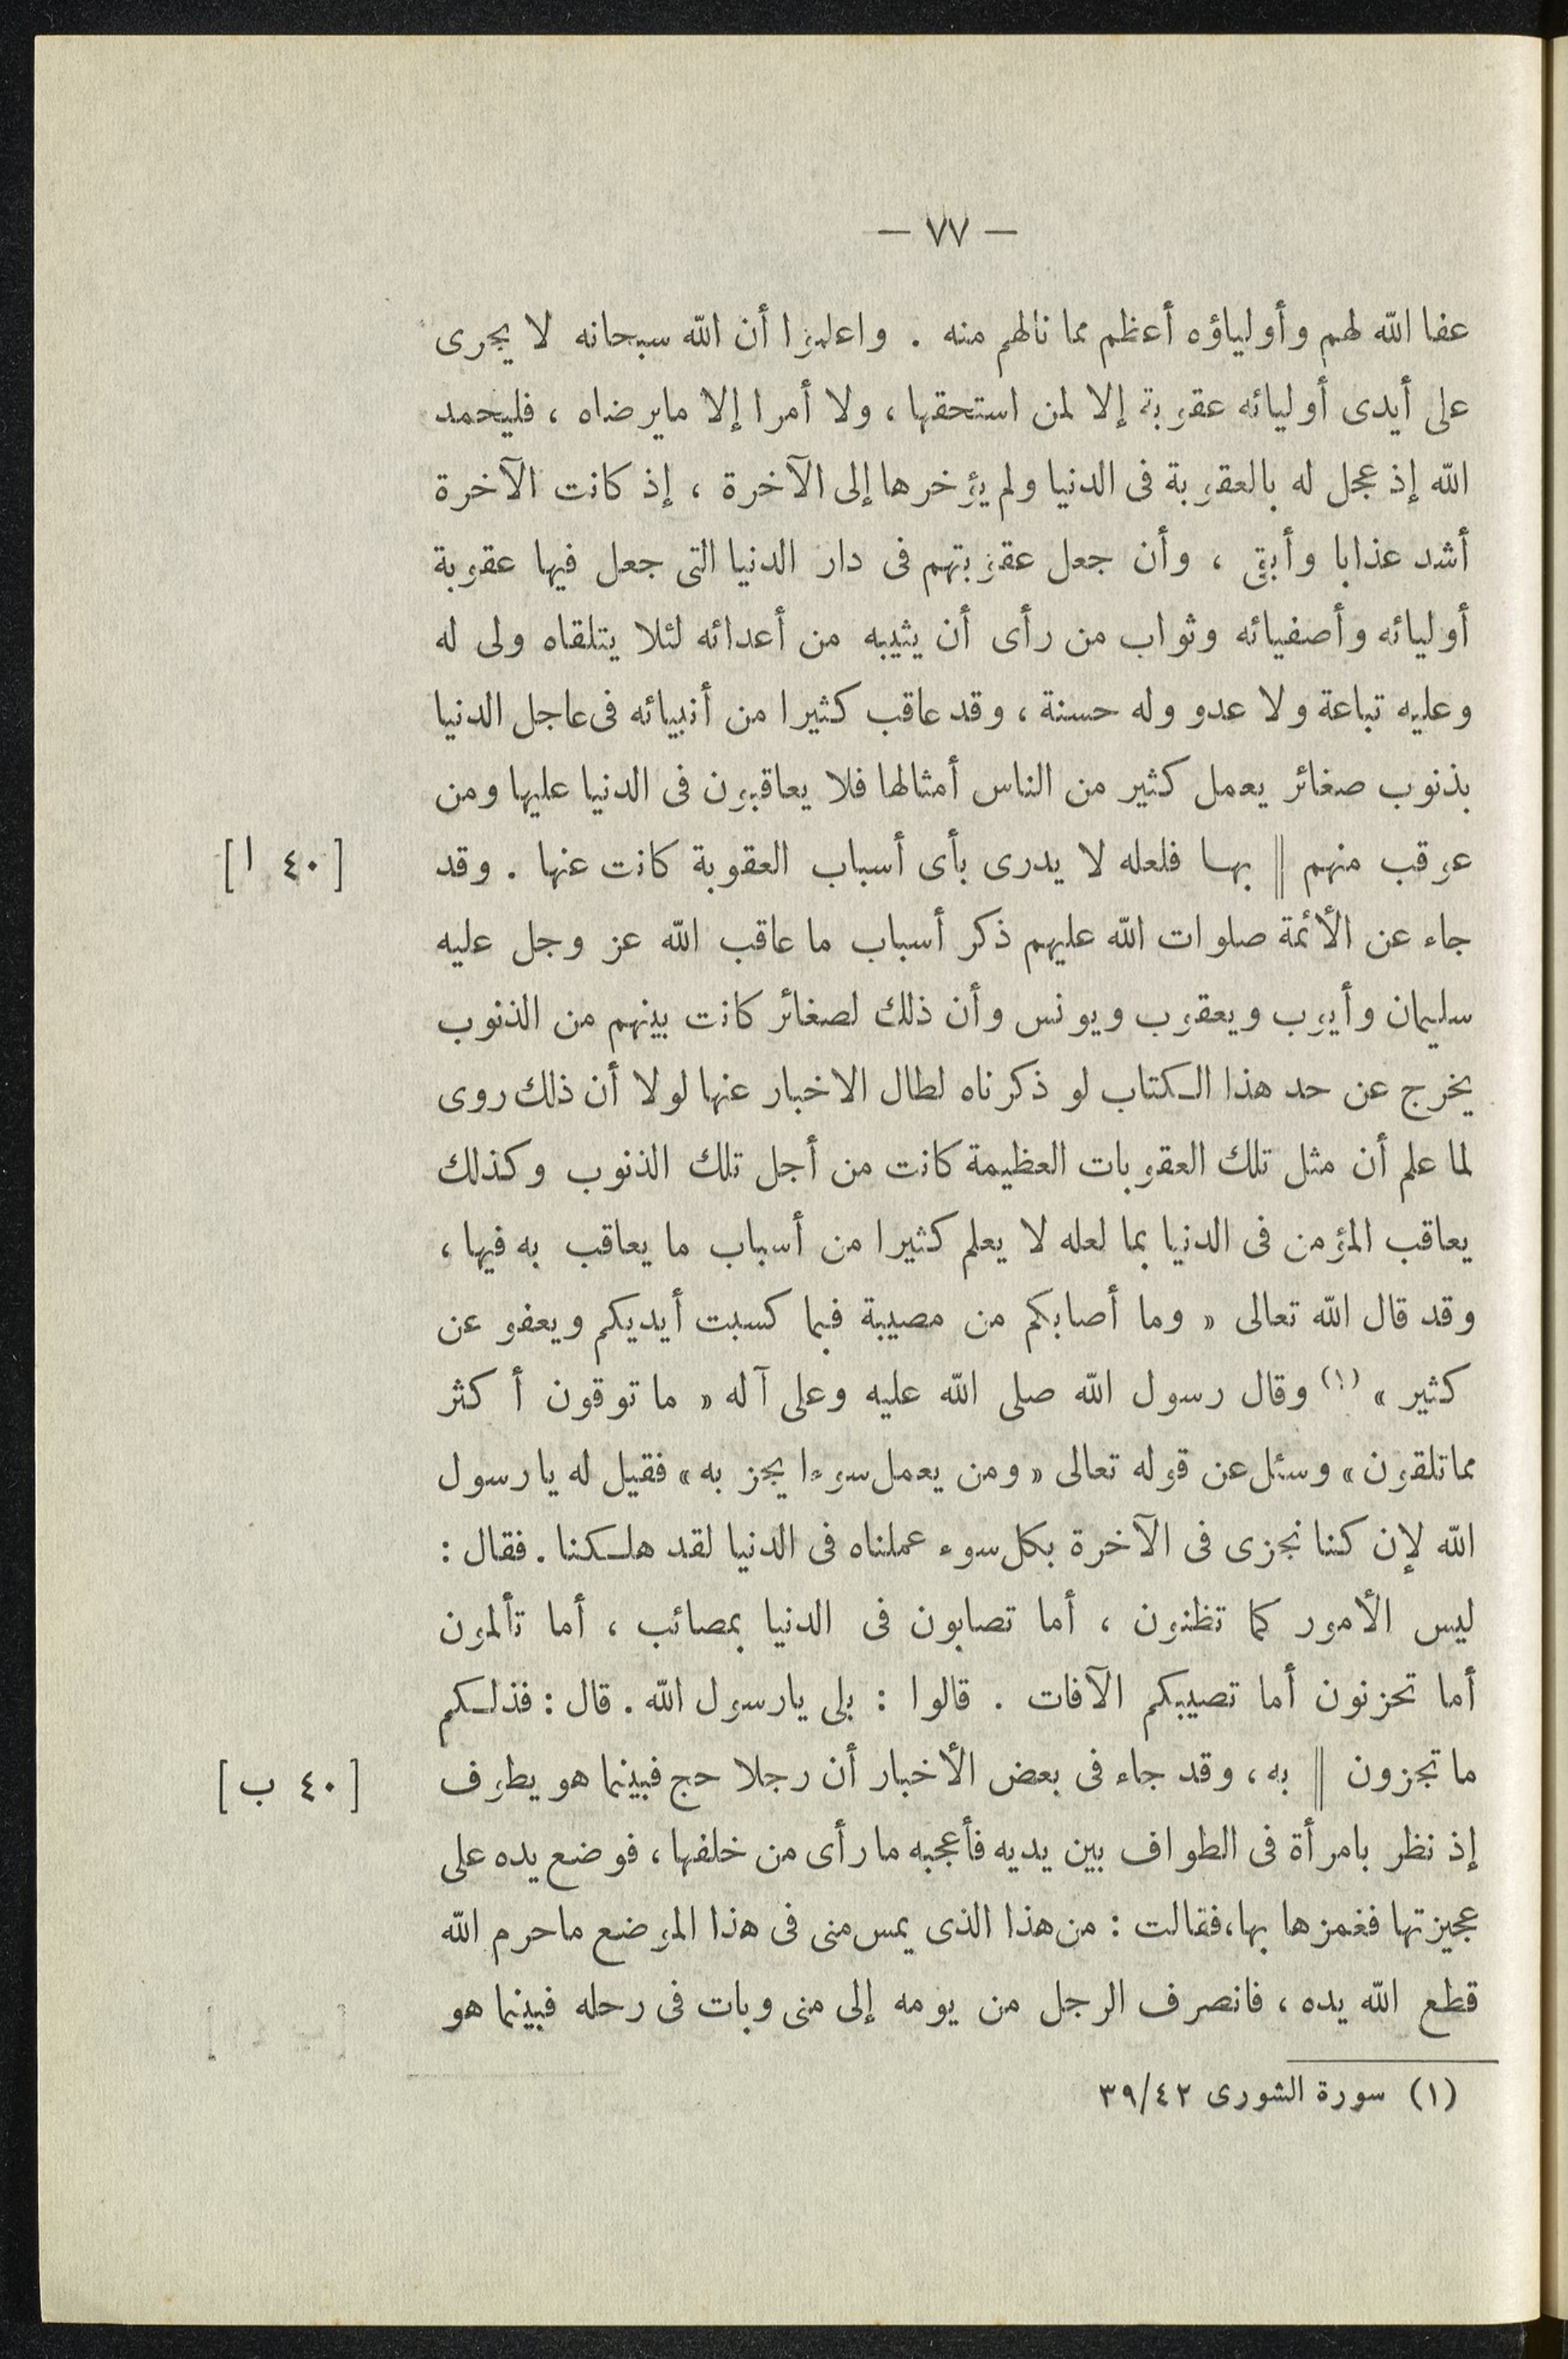 — ٧٧ —
عفا الله لهم وأولياؤه أعظم مما نالهم منه . واعلموا أن الله سبحانه لا يجرى
على أيدى أوليائه عقوبة إلا لمن استحقها ، ولا أمرا إلا مايرضاه ، فليحمد
الله إذ عجل له بالعقوبة فى الدنيا ولم يؤخرها إلى الآخرة ، إذ كانت الآخرة
أشد عذابا وأبقى ، وأن جعل عقوبتهم فى دار الدنيا التى جعل فيها عقوبة
أوليائه وأصفيائه وثواب من رأى أن يثيبه من أعدائه لئلا يتلقاه ولى له
وعليه تباعة ولا عدو وله حسنة ، وقد عاقب كثيرا من أنبيائه فى عاجل الدنيا
بذنوب صغائر يعمل كثير من الناس أمثالها فلا يعاقبون فى الدنيا عليها ومن
عوقب منهم || بها فلعله لا يدرى بأى أسباب العقوبة كانت عنها . وقد [ ٤٠ ا ]
جاء عن الأئمة صلوات الله عليهم ذكر أسباب ما عاقب الله عز وجل عليه
سليمان وأيوب ويعقوب ويونس وأن ذلك لصغائر كانت بينهم من الذنوب
يخرج عن حد هذا الكتاب لو ذكرناه لطال الاخبار عنها لولا أن ذلك روى
لما علم أن مثل تلك العقوبات العظيمة كانت من أجل تلك الذنوب وكذلك
يعاقب المؤمن فى الدنيا بما لعله لا يعلم كثيرا من أسباب ما يعاقب به فيها ،
وقد قال الله تعالى « وما أصابكم من مصيبة فبما كسبت أيديكم ويعفو عن
كثير » (١) وقال رسول الله صلى الله عليه وعلى آله « ما توقون أكثر
مماتلقون » وسئل عن قوله تعالى « ومن يعمل سوءا يجز به » فقيل له يا رسول
الله لإن كنا نجزى فى الآخرة بكل سوء عملناه فى الدنيا لقد هلكنا . فقال :
ليس الأمور كما تظنون ، أما تصابون فى الدنيا بمصائب ، أما تألمون
أما تحزنون أما تصيبكم الآفات . قالوا : بلى يارسول الله . قال : فذلكم
ما تجزون || به ، وقد جاء فى بعض الأخبار أن رجلا حج فبينما هو يطوف [ ٤٠ ب ]
إذ نظر بامرأة فى الطواف بين يديه فأعجبه ما رأى من خلفها ، فوضع يده على
عجيزتها فغمزها بها ، فقالت : من هذا الذى يمس منى فى هذا الموضع ماحرم الله
قطع الله يده ، فانصرف الرجل من يومه إلى منى وبات فى رحله فبينما هو
(١) سورة الشورى ٣٩/٤٢